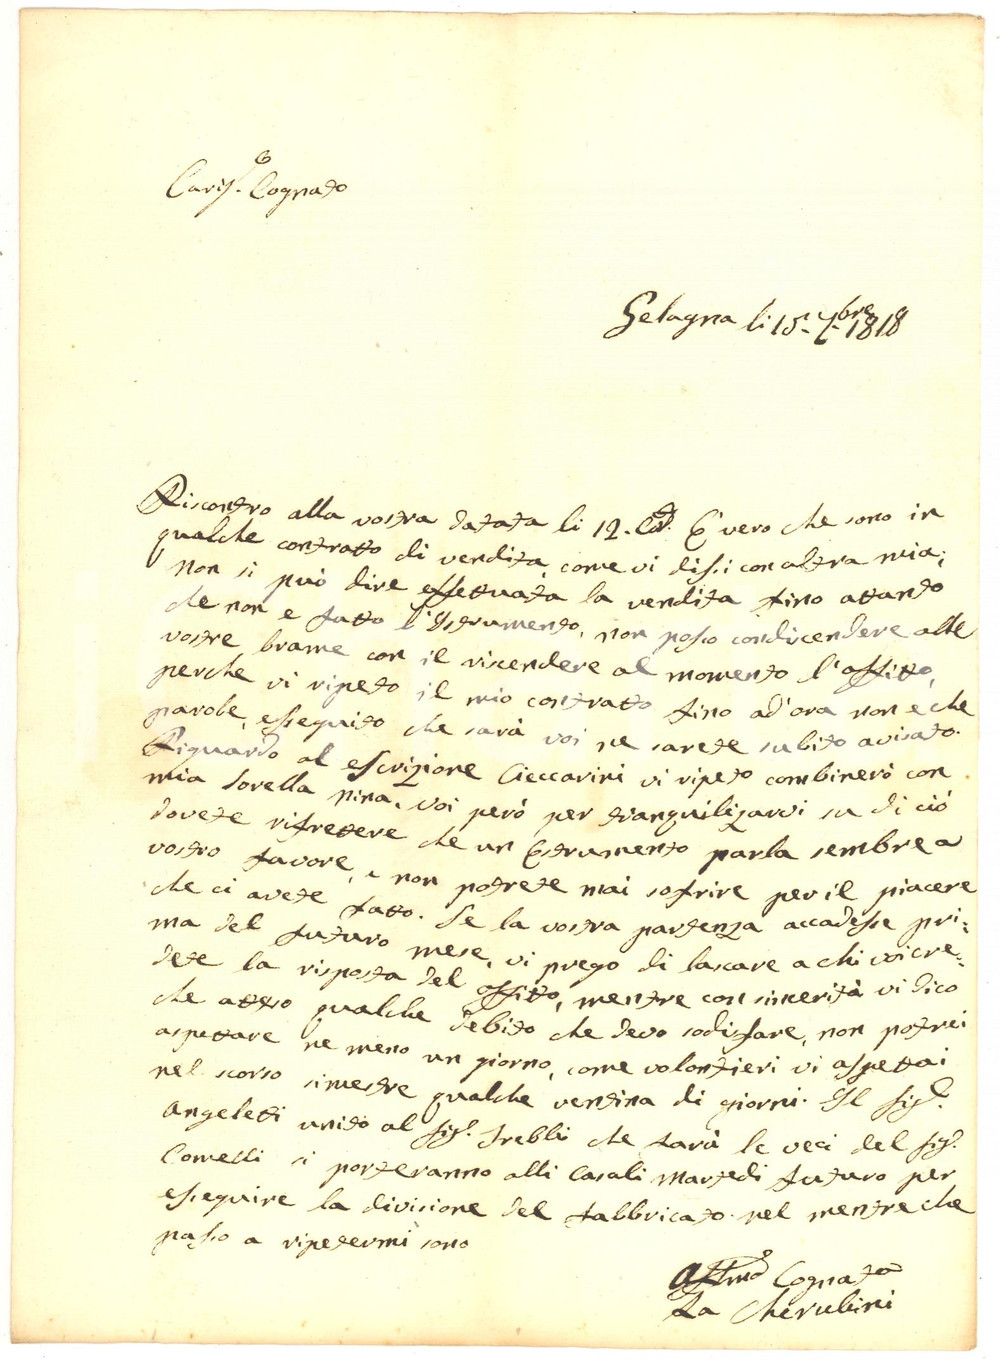 Cariss.o Cognato
Gelagna li 15. 7bre 1818
Riscontro alla vostra datata li 12. Cor.t E vero che sono in
qualche contratto di vendita, come vi dissi con altra mia;
non si può dire effettuata la vendita fino attanto
che non e fatto l'Istrumento, non posso condiscendere alle
vostre brame con il riscendere al momento l'affitto,
perche vi ripeto il mio contratto fino ad'ora non e che
parole, esseguito che sarà voi ne sarete subito avisato.
Riguardo al escrizione Cieccarini vi ripeto combinerò con
mia Sorella Nina, voi però per tranquilizarvi su di ciò
dovete rifrettere che un Estrumento parla sembre a
vostro favore, e non potrete mai sofrire per il piacere
che ci avete fatto. Se la vostra partenza accadesse pri=
ma del futuro mese, vi prego di lascare a chi voi cre=
dete la risposta del affitto, mentre con sincerità vi dico
che atteso qualche debito che devo sodisfare, non potrei
aspettare ne meno un giorno, come volontieri vi aspettai
nel scorso simestre qualche ventina di giorni. Il Sig.r
Angeletti unito al Sig.r Trebbi che farà le veci del Sig.r
Comelli si porteranno alli Casali Martedi futuro per
esseguire la divisione del fabbricato. nel mentre che
passo a ripetermi sono
Aff.mo Cognato
Za Cherubini